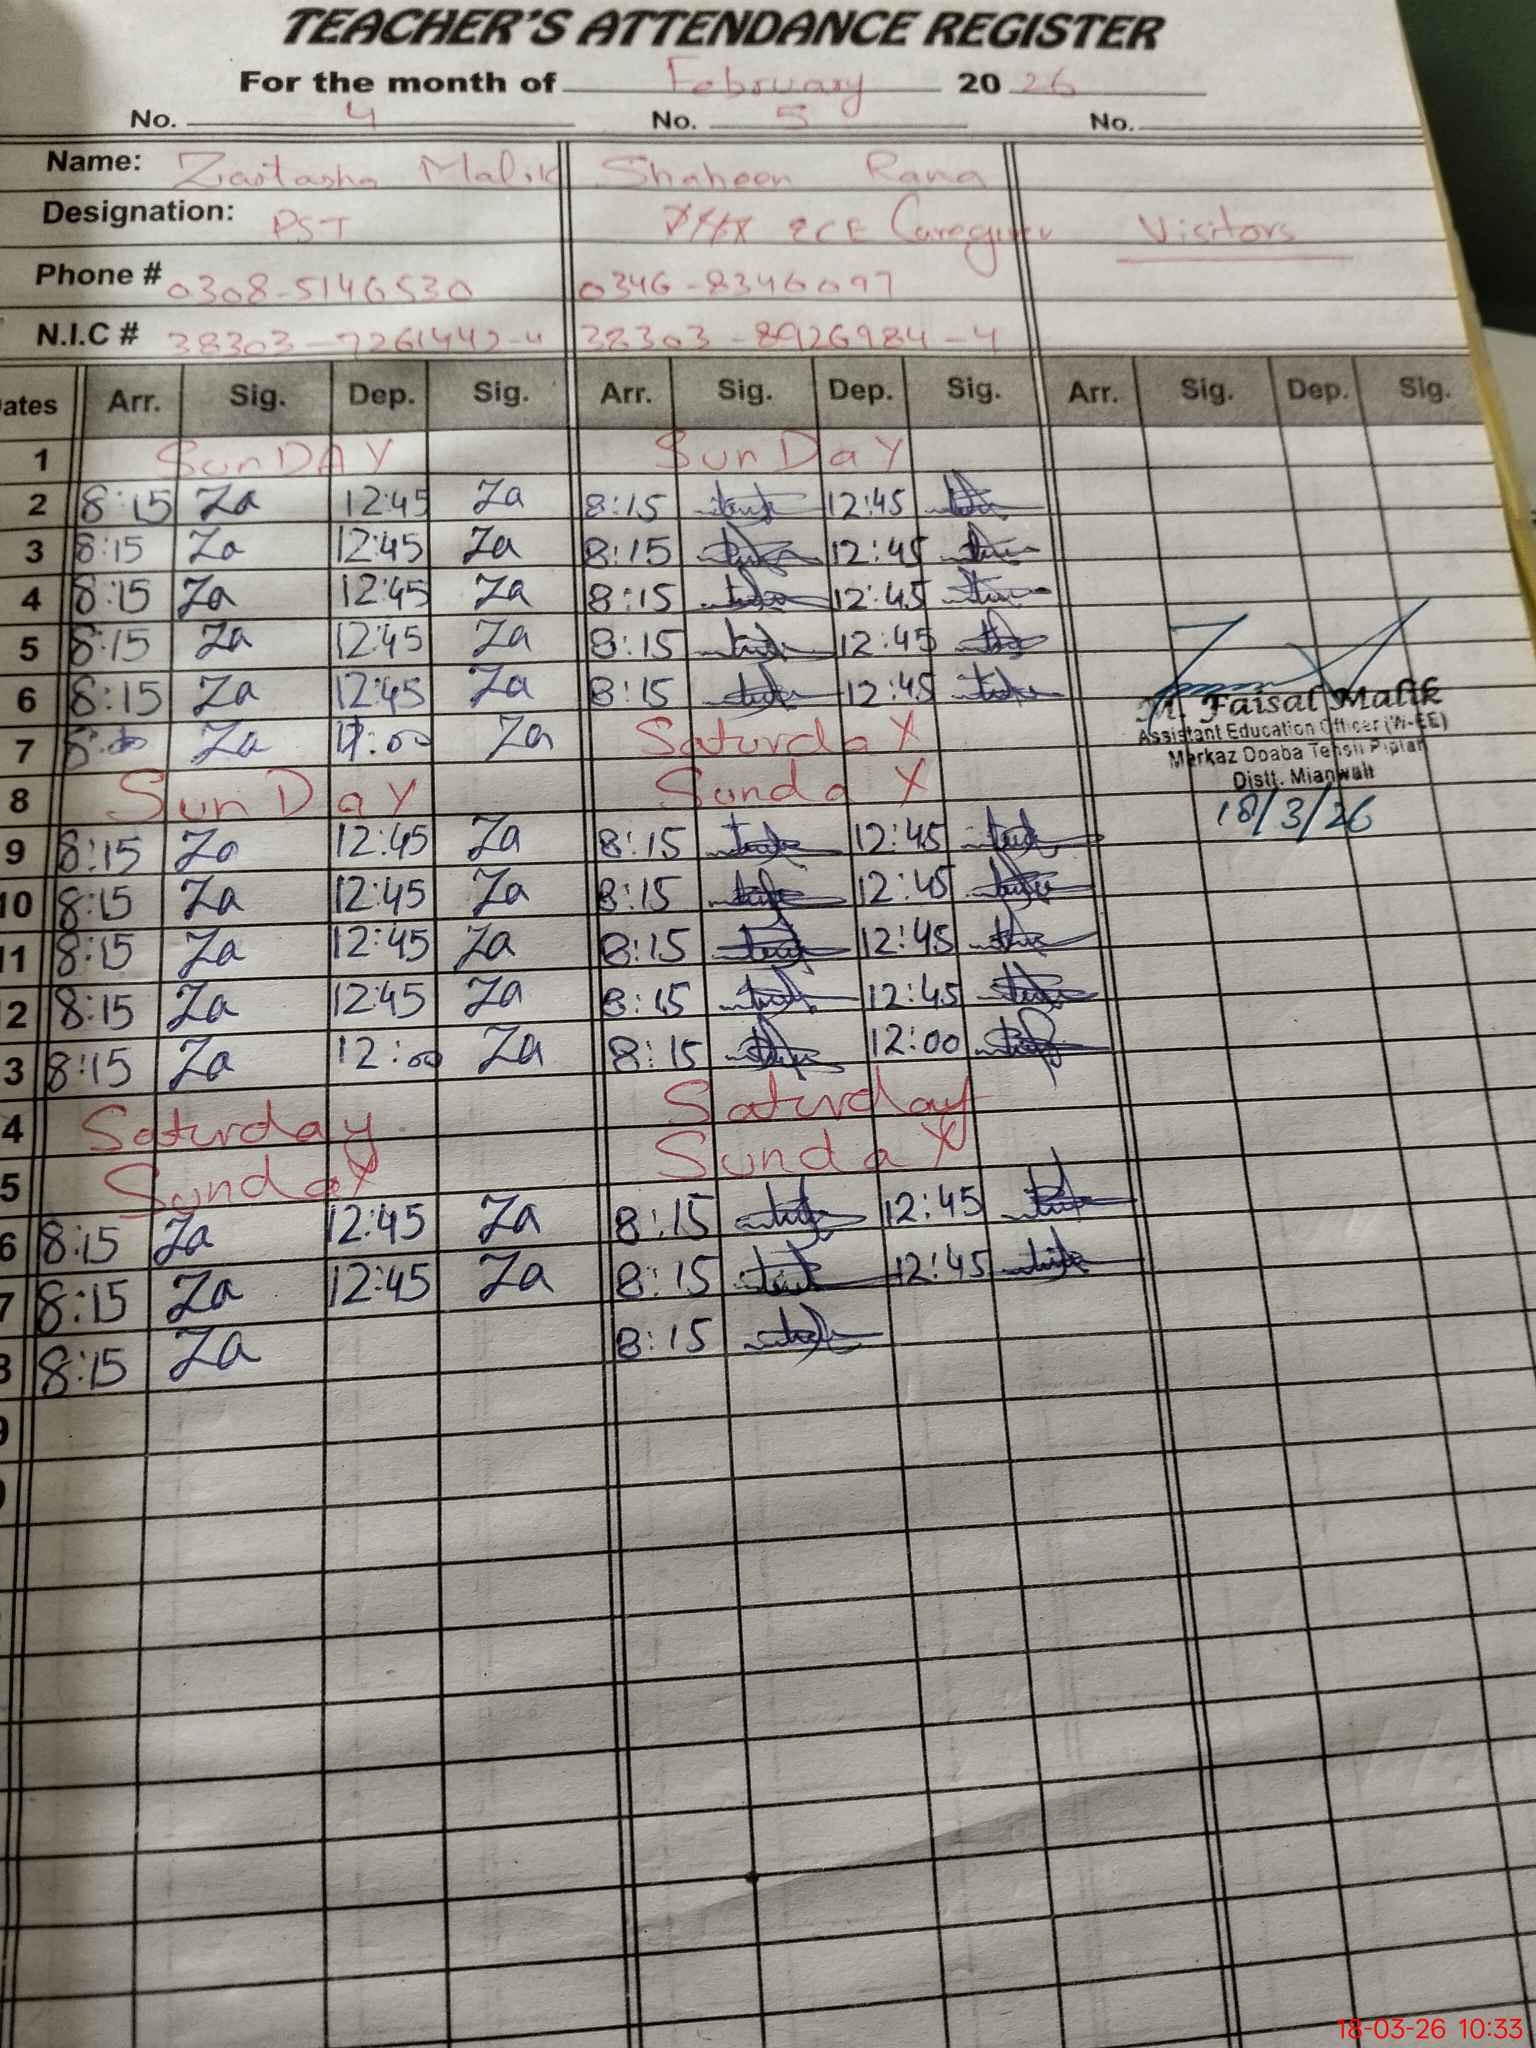 TEACHER'S ATTENDANCE REGISTER
For the month of February 20 26
No. 4 No. 5 No.
Name: Zartasha Malik Shaheen Rana
Designation: PST ECE Caregiver Visitors
Phone # 0308-5146530 0346-8346097
N.I.C # 38303-7261442-4 38303-8926984-4
ates Arr. Sig. Dep. Sig. Arr. Sig. Dep. Sig. Arr. Sig. Dep. Sig.
1 SunDAY SunDaY
2 8:15 Za 12:45 Za 8:15 12:45
3 8:15 Za 12:45 Za 8:15 12:45
4 8:15 Za 12:45 Za 8:15 12:45
5 8:15 Za 12:45 Za 8:15 12:45
6 8:15 Za 12:45 Za 8:15 12:45
M. Faisal Malik
Assistant Education Officer (W-EE)
Markaz Doaba Tehsil Piplan
Distt. Mianwali
18/3/26
7 Za Za Saturday
8 SunDay Sunday
9 8:15 Za 12:45 Za 8:15 12:45
10 8:15 Za 12:45 Za 8:15 12:45
11 8:15 Za 12:45 Za 8:15 12:45
2 8:15 Za 12:45 Za 8:15 12:45
3 8:15 Za 12:00 Za 8:15 12:00
4 Saturday Saturday
5 Sunday Sunday
6 8:15 Za 12:45 Za 8:15 12:45
7 8:15 Za 12:45 Za 8:15 12:45
8 8:15 Za 8:15
9
0
18-03-26 10:33